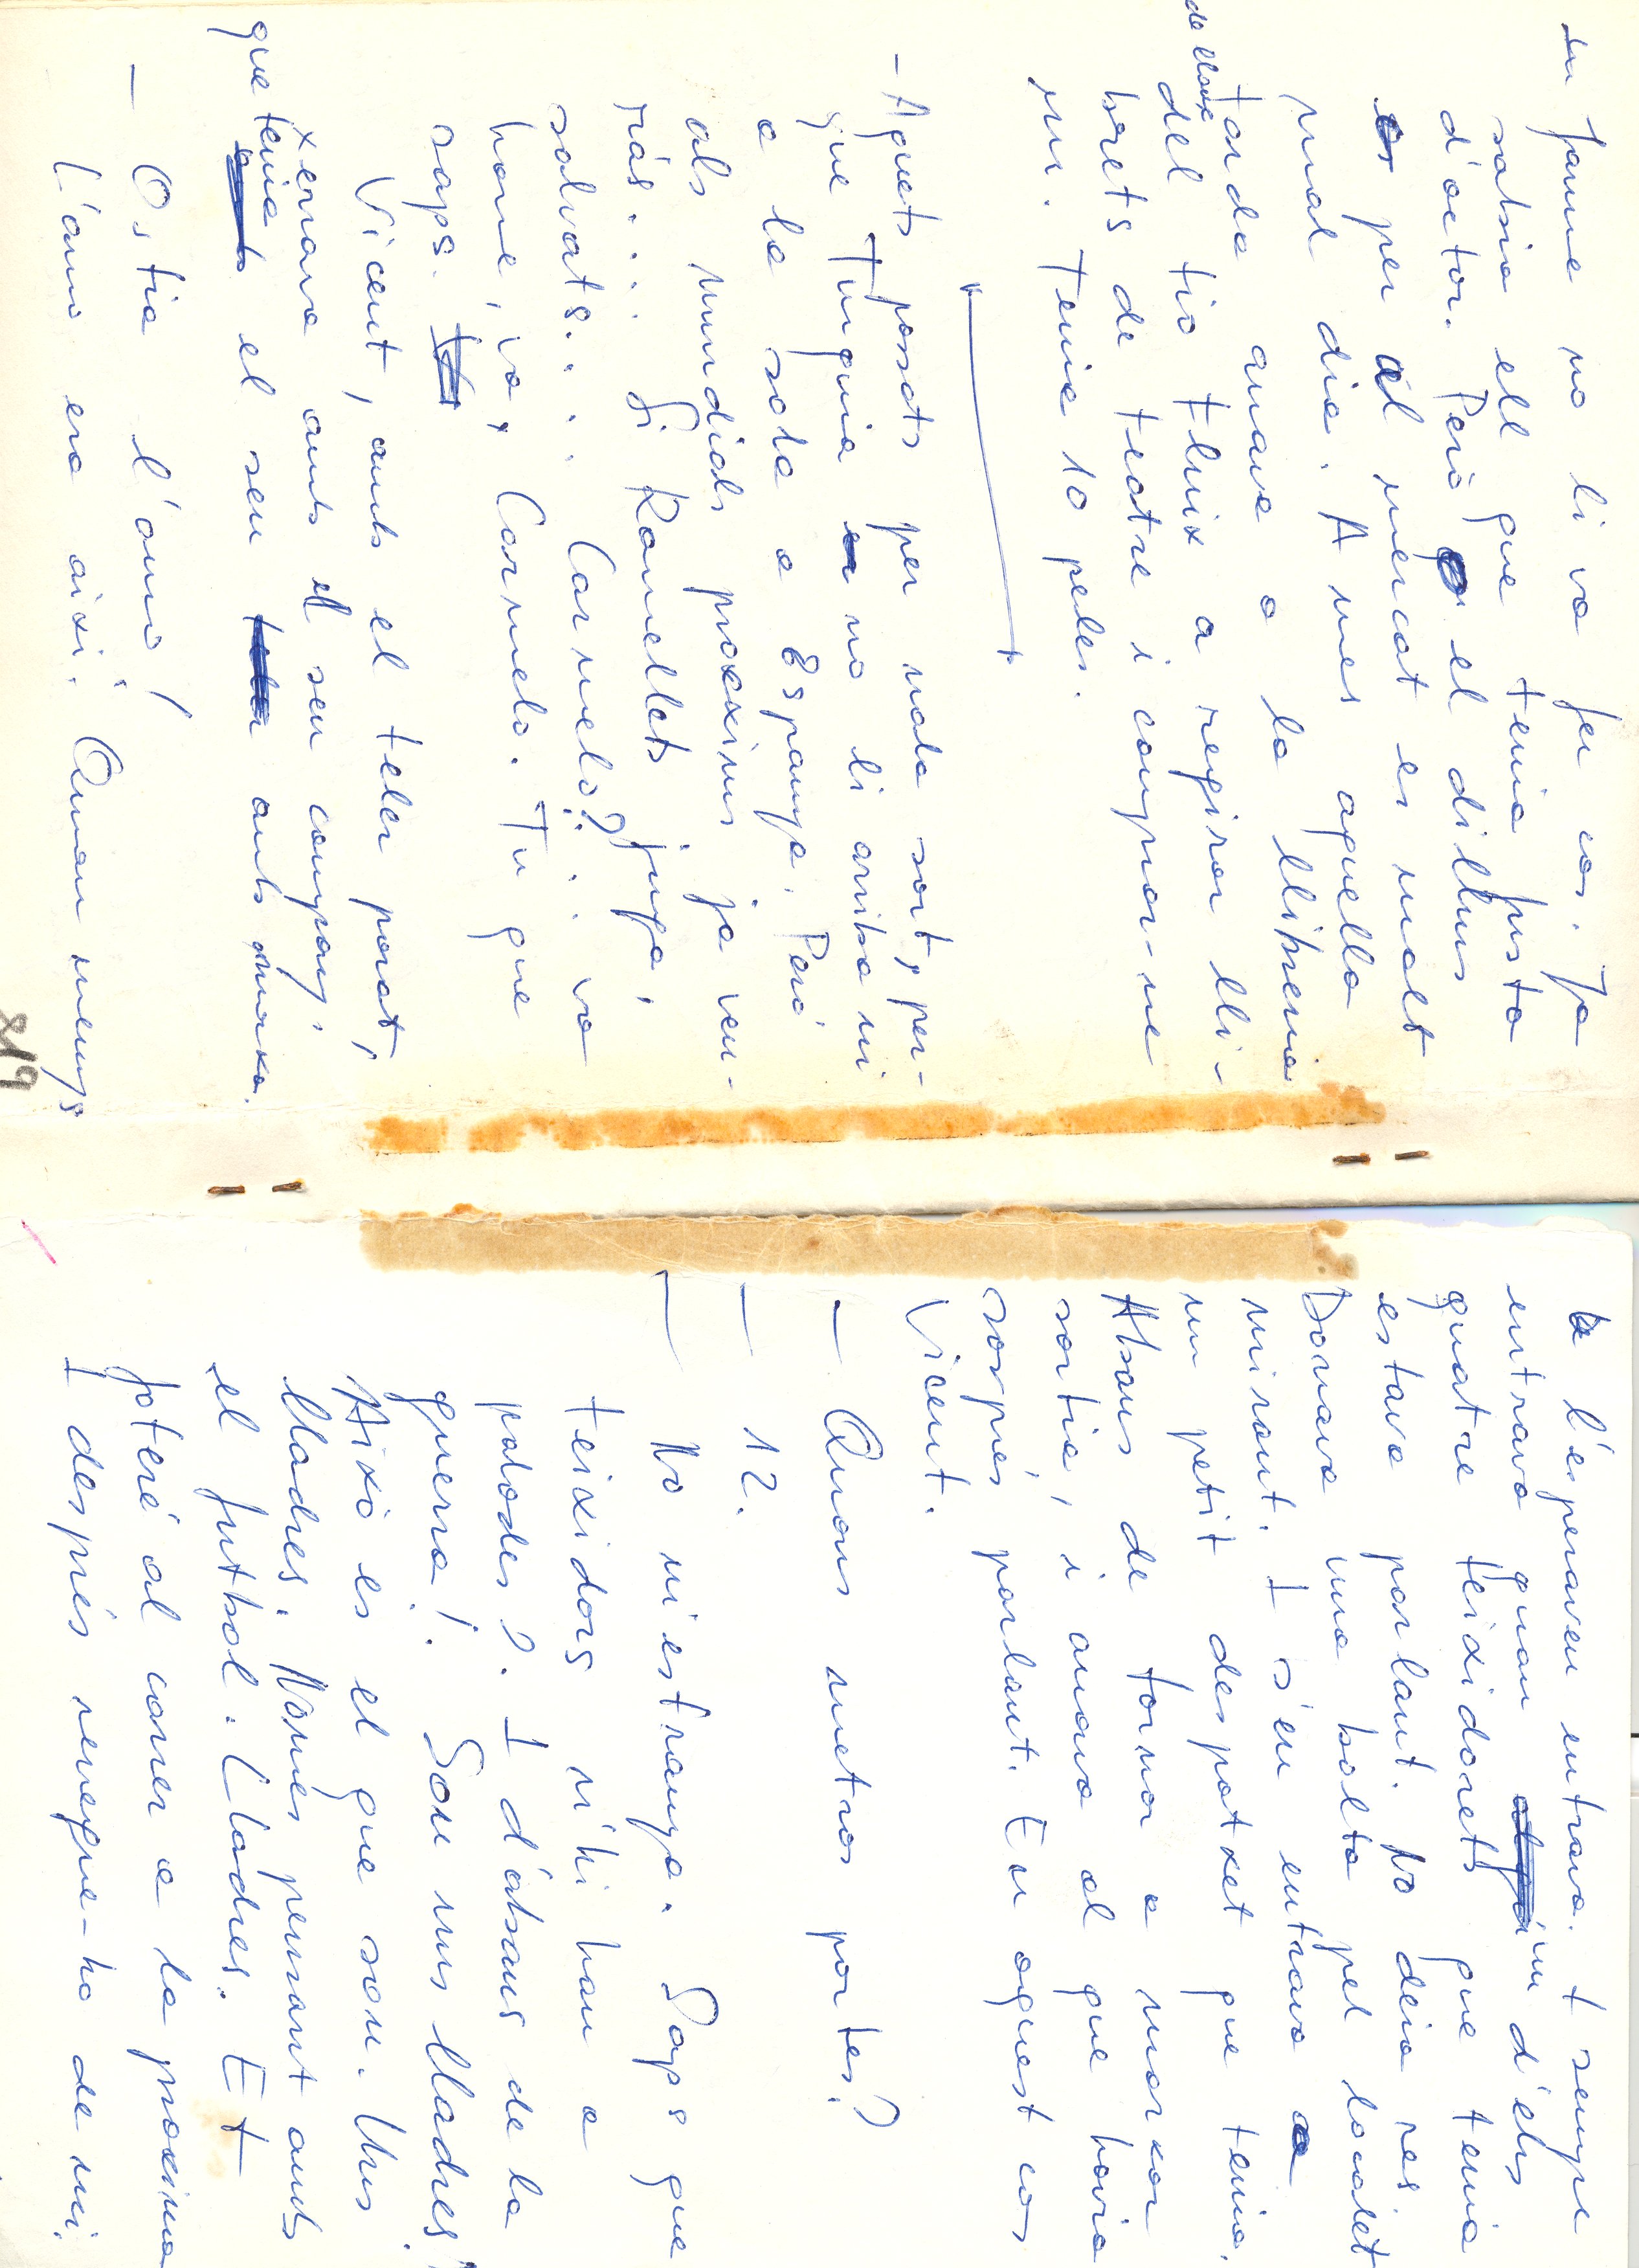 en Jaume no li va fer cas. Ja
sabia ell que tenia pinta
d'actor. Però el dilluns
per al mercat es molt
mal dia. A mes aquella
tarda anava a la llibreria
de llance
del tio Fluix a regirar lli-
brets de teatre i comprar-ne
un. Tenia 10 peles.
- Aquets passats per mala sort, per-
que Tunquia no li arriba ni
a la sola a Espanya. Però
als mundials proxims ja veu-
ràs.... Si Ramellets juga,
salvats... Carmelo?... va
home, va, Carmelo. Tu que
saps.
Vicent, amb el teler parat,
xerrava amb el seu company,
que tenia el seu amb marxa.
- Ostia l'amo!
L'amo era aixi. Quan menys
l'esperaven entrava. I sempre
entrava quan un d'els
quatre teixidorets que tenia
estava parlant. No deia res.
Donava una bolta pel localet
mirant. I s'en entrava a
un petit despatxet que tenia.
Abans de tornar a marxar
sortia, i anava al que havia
sorpres parlant. En aquest cas
Vicent.
- Quans metros portes?
- 12.
- No m'estranya. Saps que
teixidors n'hi han a
palades?. I d'abans de la
guerra!. Sou uns lladres!
Aixo es el que sou. Uns
lladres. Només pensant amb
el futbol. Lladres. Et
fotré al carrer a la proxima
I després renegue-ho de mi.